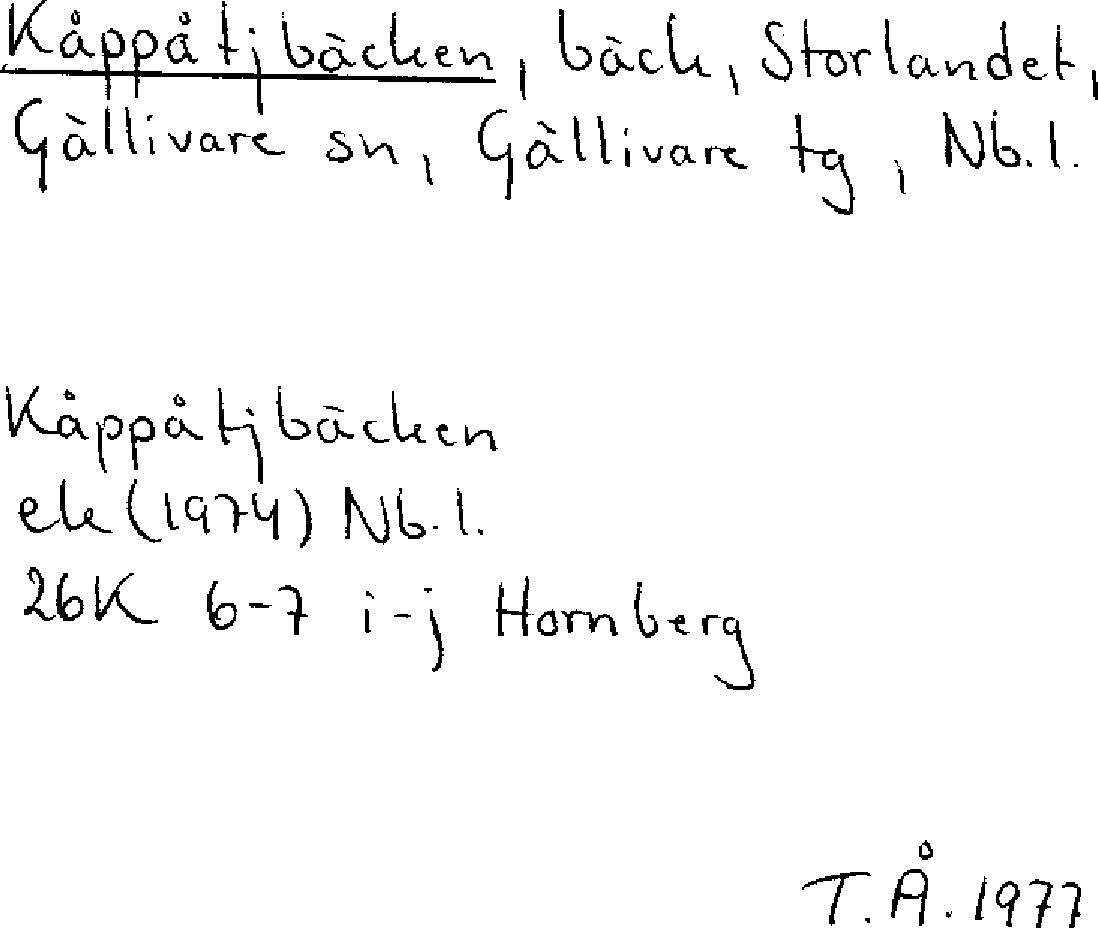 Kåppåtjbäcken, bäck, Storlandet,
Gällivare sn, Gällivare tg, Nb.l.
Kåppåtjbäcken
ek (1974) Nb.l.
26K 6-7 i-j Hornberg
T.Å. 1977